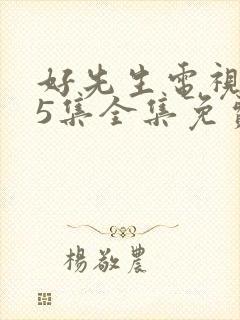 好先生電視
5集全集免費
楊敬農